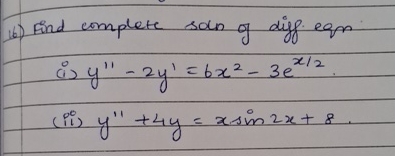 16) Find complete soln of diff. eqn
(i) y'' - 2y' = 6x² - 3e^(x/2).
(ii) y'' + 4y = x sin 2x + 8.